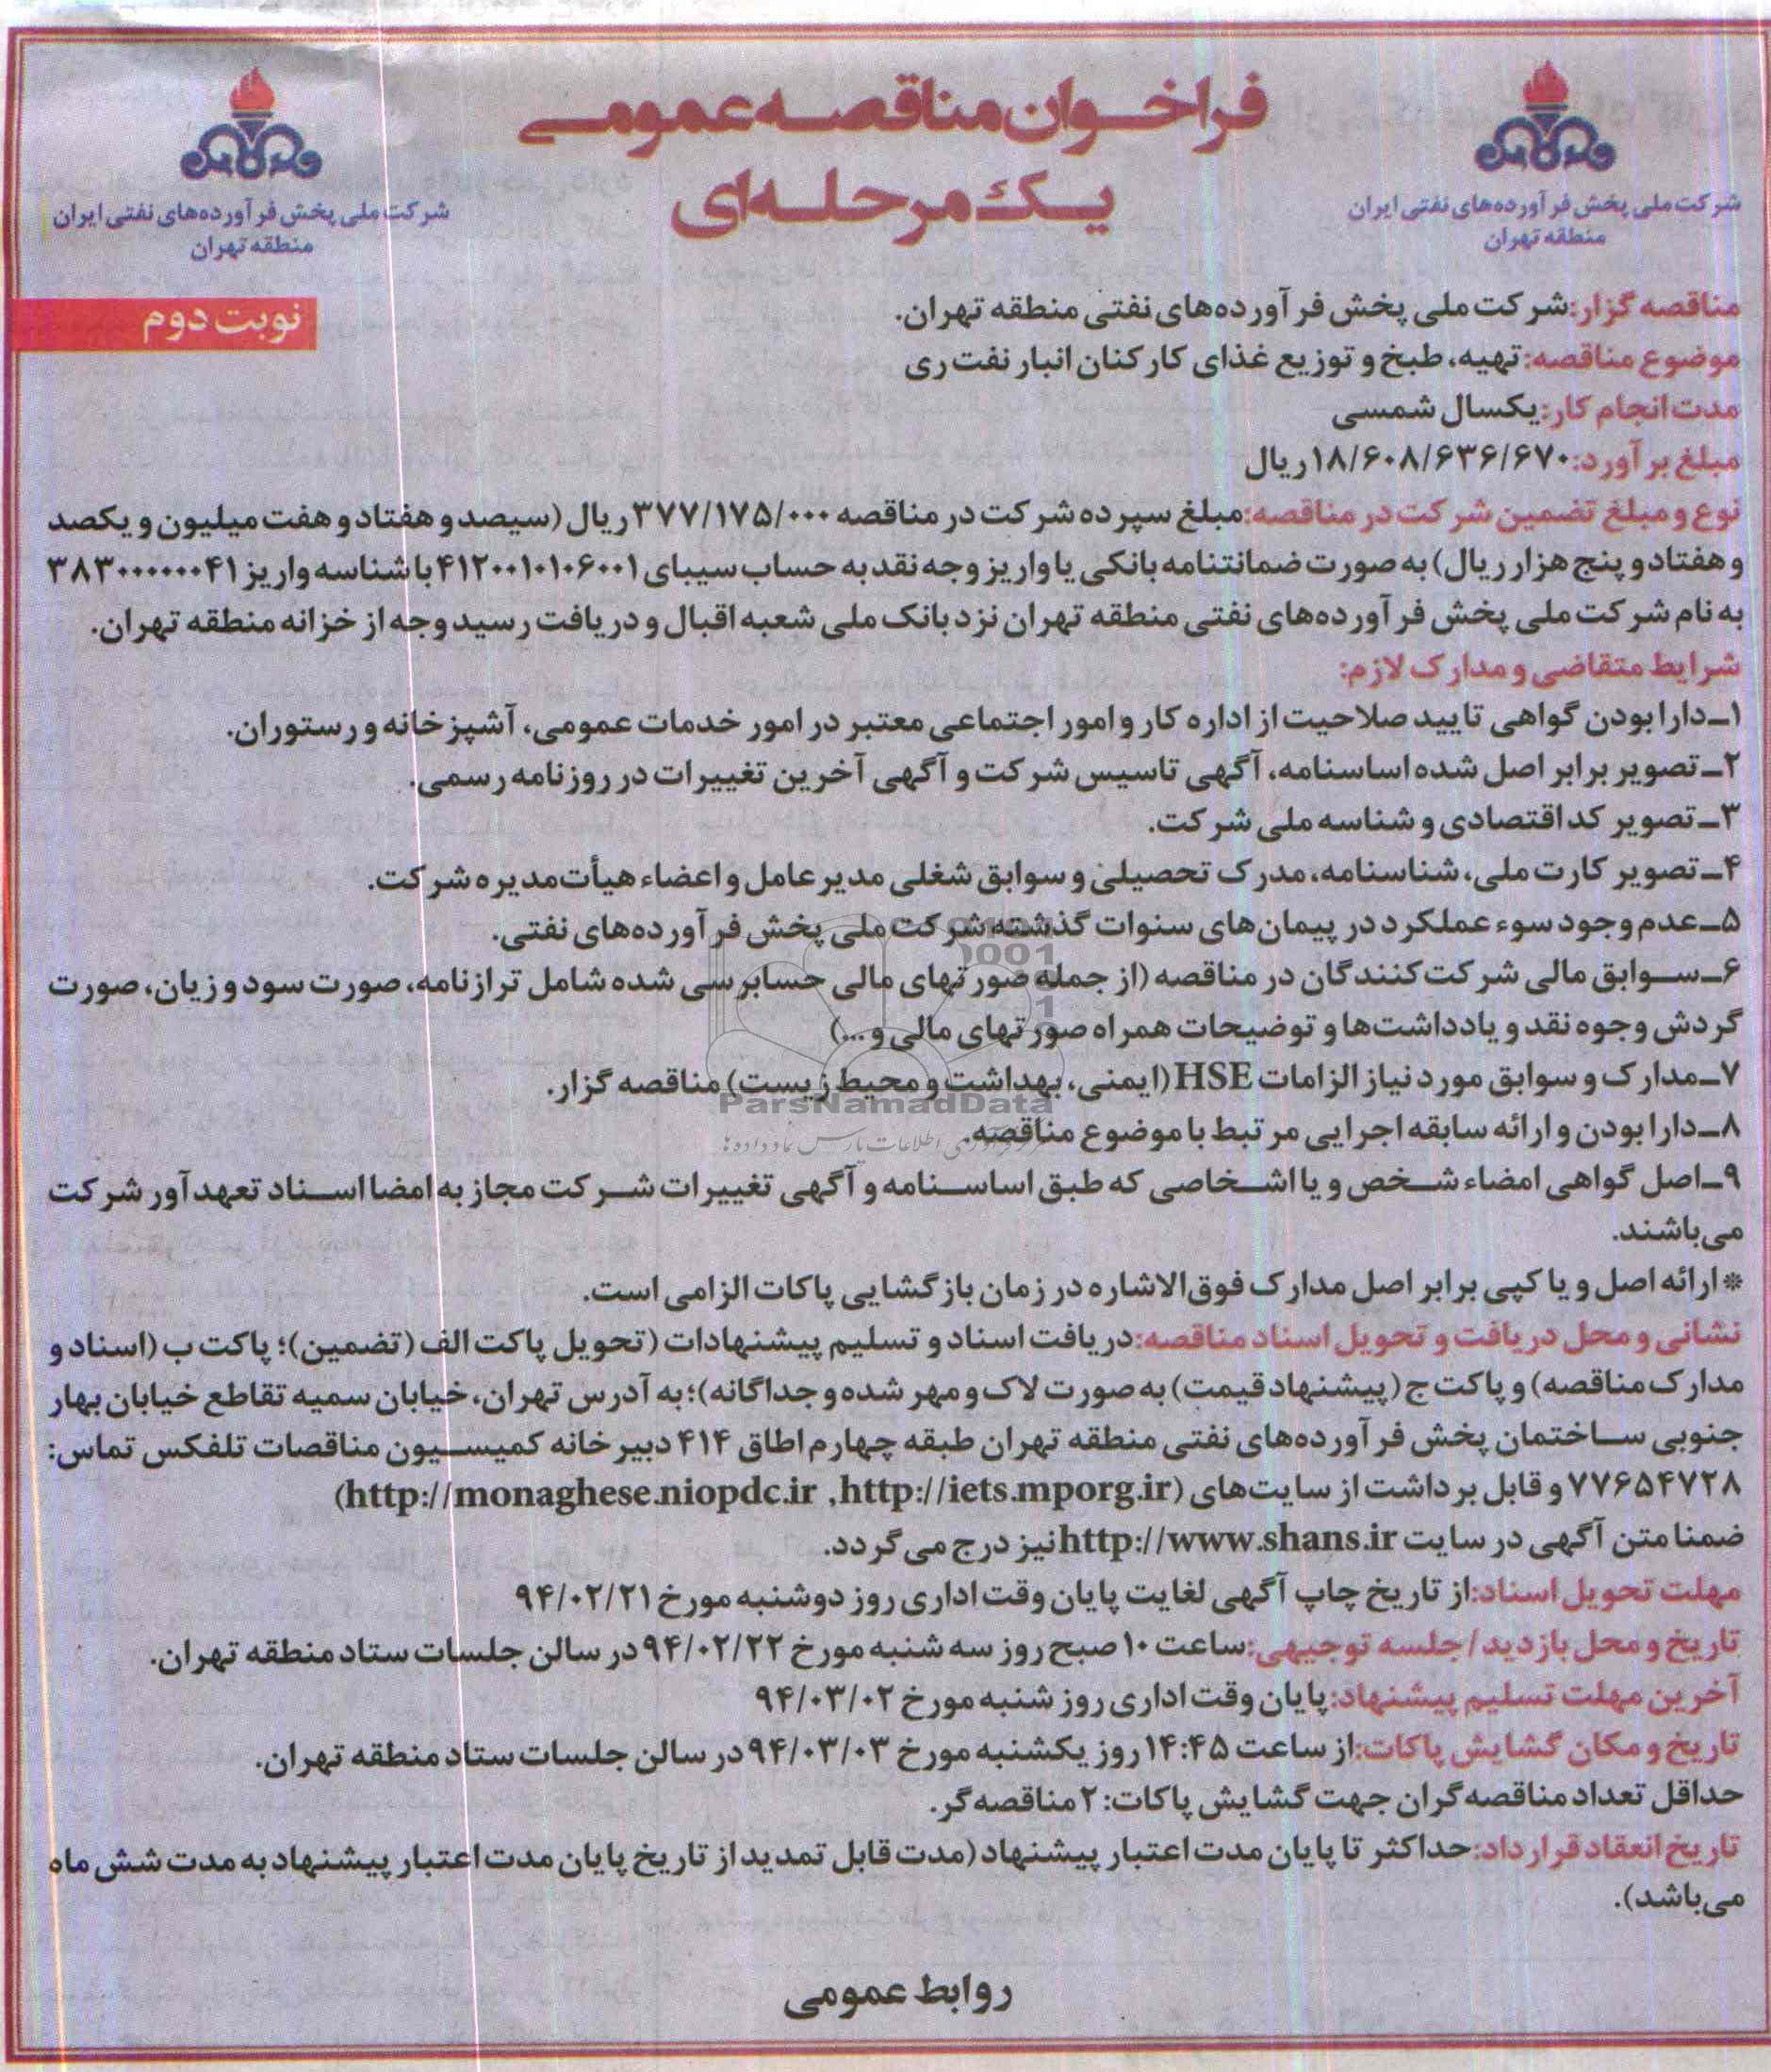 فراخوان مناقصه عمومی
یک مرحله‌ای
شرکت ملی پخش فرآورده‌های نفتی ایران
منطقه تهران
شرکت ملی پخش فرآورده‌های نفتی ایران
منطقه تهران
نوبت دوم
مناقصه گزار: شرکت ملی پخش فرآورده‌های نفتی منطقه تهران.
موضوع مناقصه: تهیه، طبخ و توزیع غذای کارکنان انبار نفت ری
مدت انجام کار: یکسال شمسی
مبلغ برآورد: ۱۸/۶۰۸/۶۳۶/۶۷۰ ریال
نوع و مبلغ تضمین شرکت در مناقصه: مبلغ سپرده شرکت در مناقصه ۳۷۷/۱۷۵/۰۰۰ ریال (سیصد و هفتاد و هفت میلیون و یکصد
و هفتاد و پنج هزار ریال) به صورت ضمانتنامه بانکی یا واریز وجه نقد به حساب سیبای ۴۱۲۰۰۱۰۱۰۶۰۰۱ با شناسه واریز ۳۸۳۰۰۰۰۰۰۰۴۱
به نام شرکت ملی پخش فرآورده‌های نفتی منطقه تهران نزد بانک ملی شعبه اقبال و دریافت رسید وجه از خزانه منطقه تهران.
شرایط متقاضی و مدارک لازم:
۱ـ دارا بودن گواهی تایید صلاحیت از اداره کار و امور اجتماعی معتبر در امور خدمات عمومی، آشپزخانه و رستوران.
۲ـ تصویر برابر اصل شده اساسنامه، آگهی تاسیس شرکت و آگهی آخرین تغییرات در روزنامه رسمی.
۳ـ تصویر کد اقتصادی و شناسه ملی شرکت.
۴ـ تصویر کارت ملی، شناسنامه، مدرک تحصیلی و سوابق شغلی مدیر عامل و اعضاء هیأت مدیره شرکت.
۵ـ عدم وجود سوء عملکرد در پیمان‌های سنوات گذشته شرکت ملی پخش فرآورده‌های نفتی.
۶ـ سوابق مالی شرکت کنندگان در مناقصه (از جمله صورتهای مالی حسابرسی شده شامل ترازنامه، صورت سود و زیان، صورت
گردش وجوه نقد و یادداشت‌ها و توضیحات همراه صورتهای مالی و ...)
۷ـ مدارک و سوابق مورد نیاز الزامات HSE (ایمنی، بهداشت و محیط زیست) مناقصه گزار.
ParsNamadData
۸ـ دارا بودن و ارائه سابقه اجرایی مرتبط با موضوع مناقصه.
۹ـ اصل گواهی امضاء شخص و یا اشخاصی که طبق اساسنامه و آگهی تغییرات شرکت مجاز به امضا اسناد تعهدآور شرکت
می‌باشند.
* ارائه اصل و یا کپی برابر اصل مدارک فوق‌الاشاره در زمان بازگشایی پاکات الزامی است.
نشانی و محل دریافت و تحویل اسناد مناقصه: دریافت اسناد و تسلیم پیشنهادات (تحویل پاکت الف (تضمین)؛ پاکت ب (اسناد و
مدارک مناقصه) و پاکت ج (پیشنهاد قیمت) به صورت لاک و مهر شده و جداگانه)؛ به آدرس تهران، خیابان سمیه تقاطع خیابان بهار
جنوبی ساختمان پخش فرآورده‌های نفتی منطقه تهران طبقه چهارم اطاق ۴۱۴ دبیرخانه کمیسیون مناقصات تلفکس تماس:
۷۷۶۵۴۷۲۸ و قابل برداشت از سایت‌های (http://monaghese.niopdc.ir ,http://iets.mporg.ir)
ضمنا متن آگهی در سایت http://www.shans.ir نیز درج می‌گردد.
مهلت تحویل اسناد: از تاریخ چاپ آگهی لغایت پایان وقت اداری روز دوشنبه مورخ ۹۴/۰۲/۲۱
تاریخ و محل بازدید / جلسه توجیهی: ساعت ۱۰ صبح روز سه شنبه مورخ ۹۴/۰۲/۲۲ در سالن جلسات ستاد منطقه تهران.
آخرین مهلت تسلیم پیشنهاد: پایان وقت اداری روز شنبه مورخ ۹۴/۰۳/۰۲
تاریخ و مکان گشایش پاکات: از ساعت ۱۴:۴۵ روز یکشنبه مورخ ۹۴/۰۳/۰۳ در سالن جلسات ستاد منطقه تهران.
حداقل تعداد مناقصه‌گران جهت گشایش پاکات: ۲ مناقصه‌گر.
تاریخ انعقاد قرارداد: حداکثر تا پایان مدت اعتبار پیشنهاد (مدت قابل تمدید از تاریخ پایان مدت اعتبار پیشنهاد به مدت شش ماه
می‌باشد).
روابط عمومی